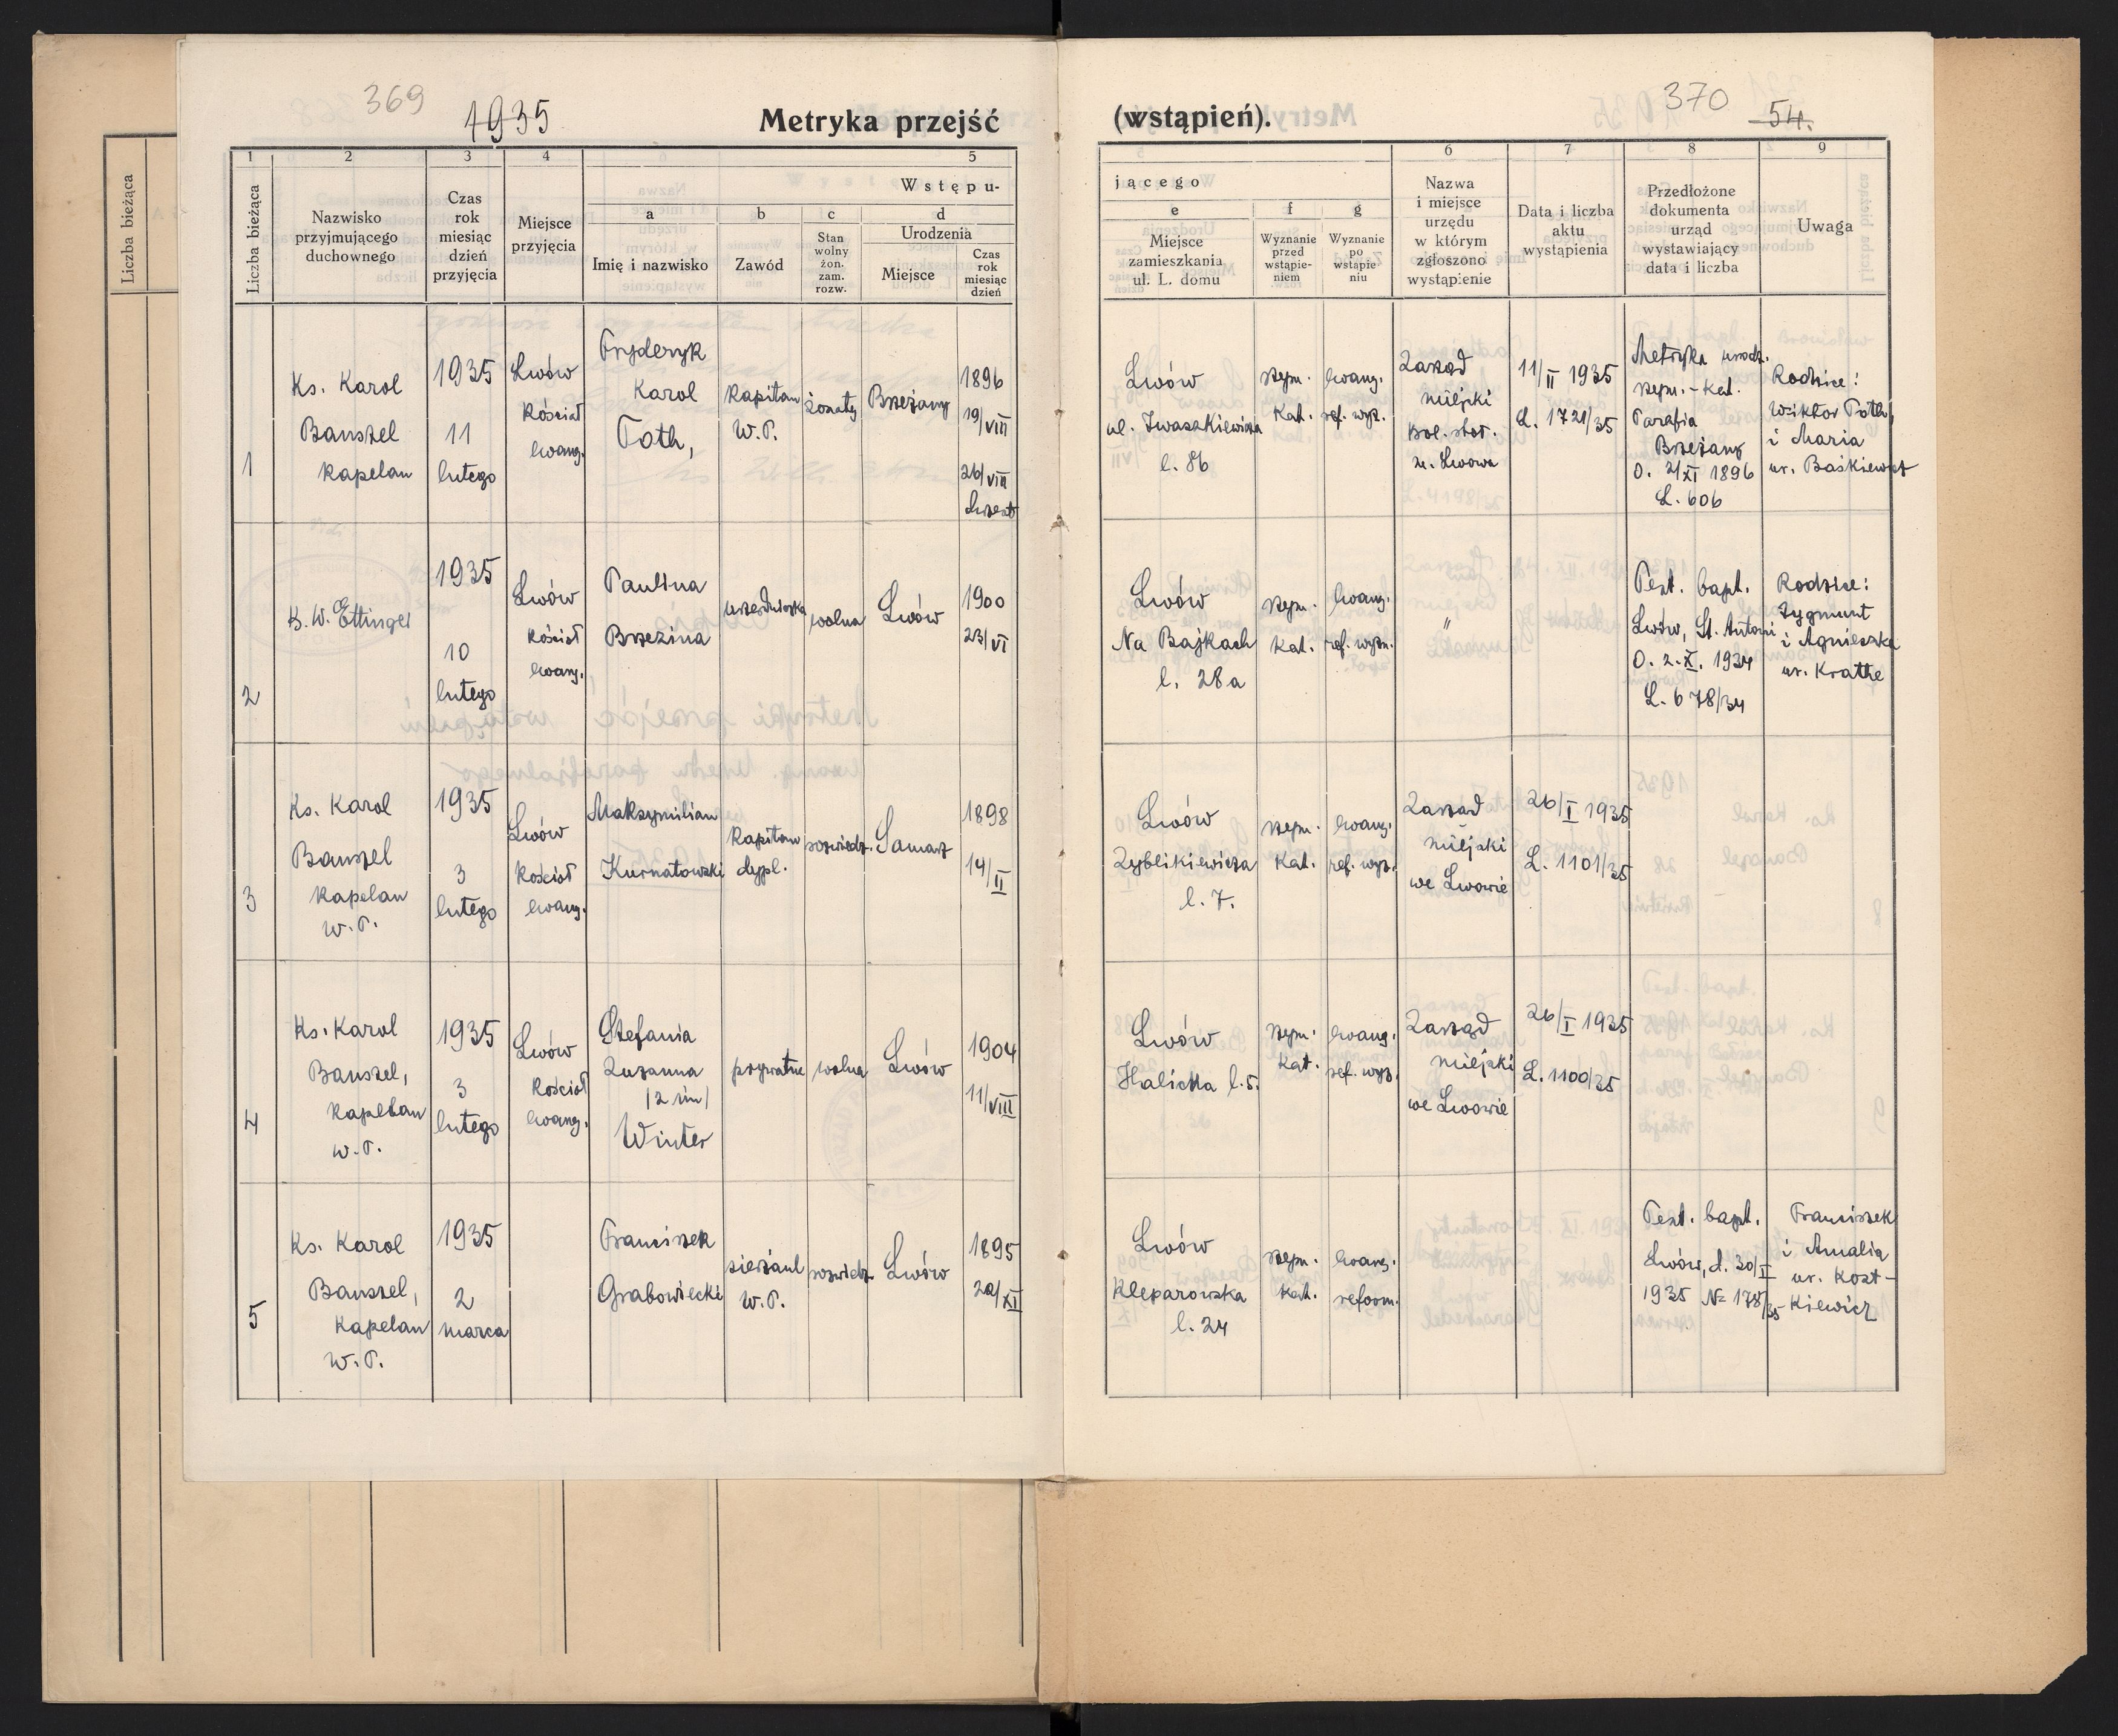 369
1935
Metryka przejść
(wstąpień).
370
54.
Liczba bieżąca
1 2 3 4 5
Liczba bieżąca
Nazwisko
przyjmującego
duchownego
Czas
rok
miesiąc
dzień
przyjęcia
Miejsce
przyjęcia
Wstępu-
a b c d
Imię i nazwisko
Zawód
Stan
wolny
żon.
zam.
rozw.
Urodzenia
Miejsce
Czas
rok
miesiąc
dzień
6 7 8 9
jącego
e f g
Miejsce
zamieszkania
ul. L. domu
Wyznanie
przed
wstąpie-
niem
Wyznanie
po
wstąpie
niu
Nazwa
i miejsce
urzędu
w którym
zgłoszono
wystąpienie
Data i liczba
aktu
wystąpienia
Przedłożone
dokumenta
urząd
wystawiający
data i liczba
Uwaga
1
Ks. Karol
Banszel
kapelan
1935
11
lutego
Lwów
Kościół
ewang.
Fryderyk
Karol
Toth,
kapitan
W.P.
żonaty
Brzeżany
1896
19/VIII
26/VIII
chrzest
Lwów
ul. Iwaszkiewicza
l. 86
rzym.
kat.
ewang.
ref. wyz.
Zarząd
miejski
kol. stoł.
m. Lwowa
11/II 1935
L. 1721/35
Metryka urodz.
rzym.-kat.
Parafia
Brzeżany
D. 2/XI 1896
L. 606
Rodzice:
Wiktor Toth,
i Maria
ur. Baśkiewicz
2
K. W. Ettinger
1935
10
lutego
Lwów
Kościół
ewang.
Paulina
Brzezina
urzędniczka
wolna
Lwów
1900
23/VI
Lwów
Na Bajkach
l. 28a
rzym.
kat.
ewang.
ref. wyzn.
"
Test. bapt.
Lwów, St. Antoni
D. 2.X. 1934
L. 678/34
Rodzice:
Zygmunt
i Agnieszka
ur. Krathe
3
Ks. Karol
Banszel
kapelan
W.P.
1935
3
lutego
Lwów
Kościół
ewang.
Maksymilian
Kurnatowski
kapitan
dypl.
rozwiedz.
1898
14/II
Lwów
Zyblikiewicza
l. 7.
rzym.
kat.
ewang.
ref. wyz.
Zarząd
miejski
we Lwowie
26/I 1935
L. 1101/35
4
Ks. Karol
Banszel,
kapelan
W.P.
1935
3
lutego
Lwów
Kościół
ewang.
Stefania
Zuzanna
/2 im/
Winter
prywatne
wolna
Lwów
1904
11/VIII
Lwów
Halicka l. 5.
rzym.
kat.
ewang.
ref. wyz.
Zarząd
miejski
we Lwowie
26/I 1935
L. 1100/35
5
Ks. Karol
Banszel,
kapelan
W.P.
1935
2
marca
Franciszek
Grabowiecki
sierżant
W.P.
rozwiedz.
Lwów
1895
20/XI
Lwów
Kleparowska
l. 24
rzym.
kat.
ewang.
reform.
Test. bapt.
Lwów, d. 30/I
1935 № 178/35
Franciszek
i Amalia
ur. Kost-
kiewicz